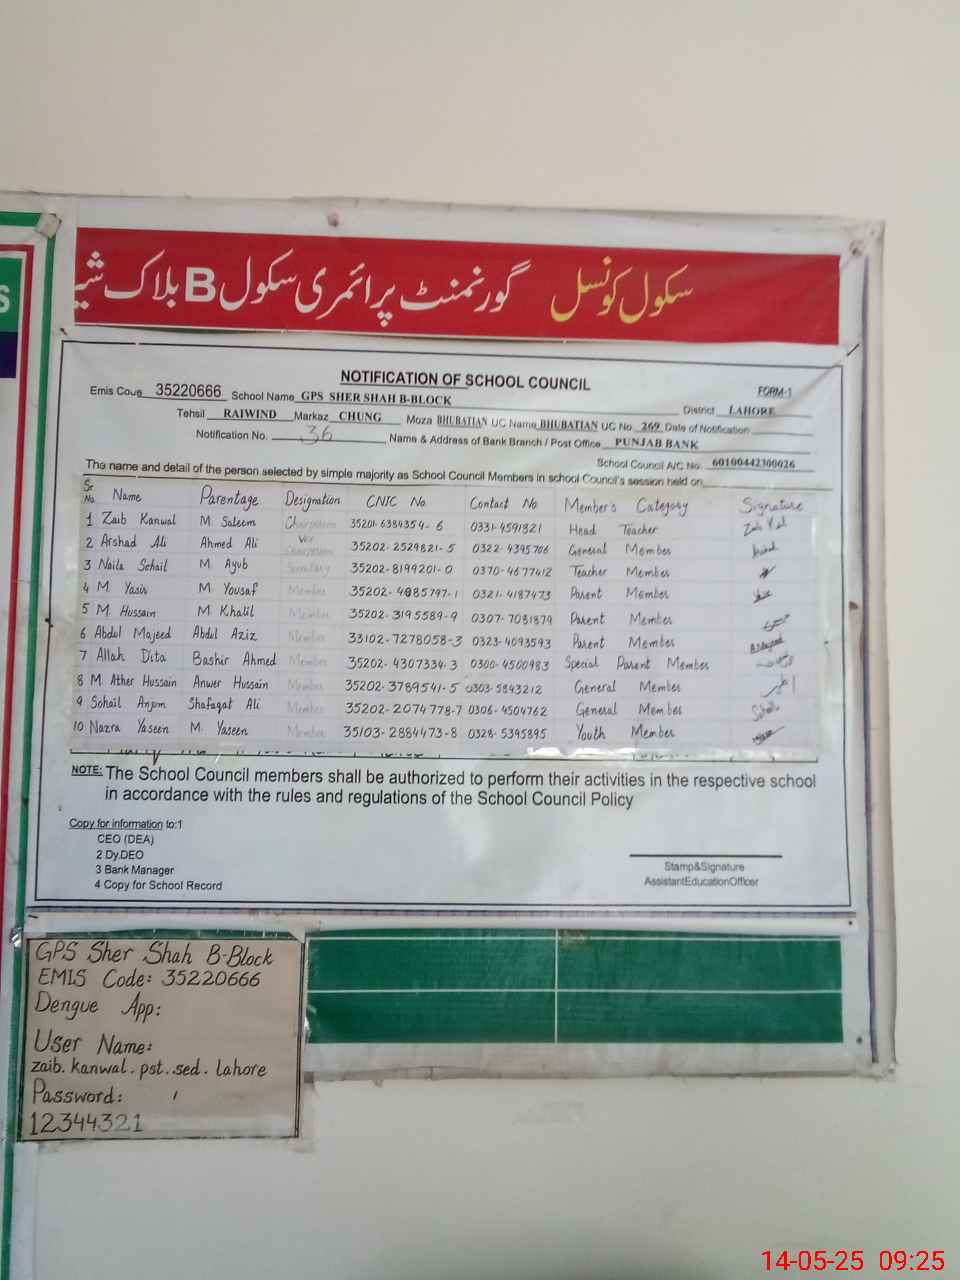 سکول کونسل گورنمنٹ پرائمری سکول B بلاک شیر
S
NOTIFICATION OF SCHOOL COUNCIL
FORM-1
Emis Coue 35220666 School Name GPS SHER SHAH B-BLOCK District LAHORE
Tehsil RAIWIND Markaz CHUNG Moza BHUBATIAN UC Name BHUBATIAN UC No. 269 Date of Notification
Notification No. 36 Name & Address of Bank Branch / Post Office PUNJAB BANK
School Council A/C No. 60100442300026
The name and detail of the person selected by simple majority as School Council Members in school Council's session held on
Sr No Name Parentage Designation CNIC No. Contact No Member's Category Signature
1 Zaib Kanwal M. Saleem Chairperson 35201-6384354-6 0331-4591821 Head Teacher
2 Arshad Ali Ahmed Ali Vice Chairperson 35202-2529821-5 0322-4395706 General Member
3 Naila Sohail M. Ayub Secretary 35202-8199201-0 0370-4677412 Teacher Member
4 M. Yasir M. Yousaf Member 35202-4085797-1 0321-4187473 Parent Member
5 M. Hussain M. Khalil Member 35202-3195589-9 0307-7031879 Parent Member
6 Abdul Majeed Abdul Aziz Member 33102-7278058-3 0323-4093593 Parent Member
7 Allah Dita Bashir Ahmed Member 35202-4307334-3 0300-4500983 Special Parent Member
8 M. Ather Hussain Anwer Hussain Member 35202-3789541-5 0303-5843212 General Member
9 Sohail Anjum Shafaqat Ali Member 35202-2074778-7 0306-4504762 General Member
10 Nazra Yaseen M. Yaseen Member 35103-2884473-8 0328-5395895 Youth Member
NOTE: The School Council members shall be authorized to perform their activities in the respective school
in accordance with the rules and regulations of the School Council Policy
Copy for information to:1
CEO (DEA)
2 Dy.DEO
3 Bank Manager
4 Copy for School Record
Stamp&Signature
AssistantEducationOfficer
GPS Sher Shah B-Block
EMIS Code: 35220666
Dengue App:
User Name:
zaib.kanwal.pst.sed.lahore
Password:
12344321
14-05-25 09:25